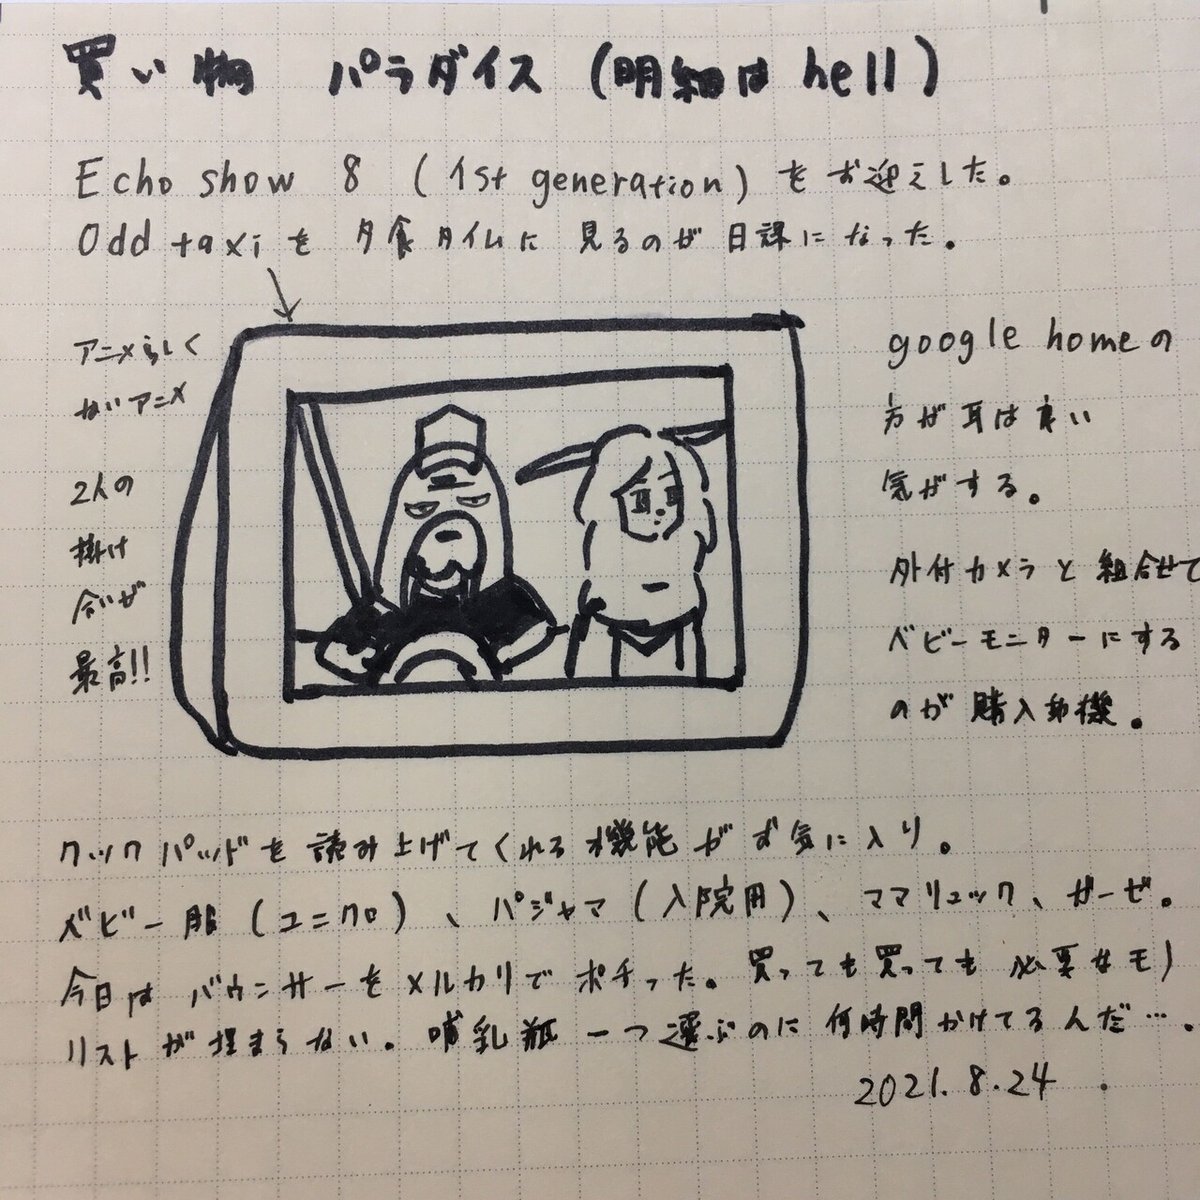 買い物 パラダイス (明細は hell)
Echo show 8 (1st generation) をお迎えした。
Odd taxi を 夕食タイムに 見るのが 日課になった。
アニメらしく
ないアニメ
2人の
掛け
合いが
最高!!
google home の
方が耳は良い
気がする。
外付カメラと組合せて
ベビーモニターにする
のが 購入動機。
クックパッドを読み上げてくれる機能がお気に入り。
ベビー服(ユニクロ)、パジャマ(入院用)、ママリュック、ガーゼ。
今日は バウンサーをメルカリでポチった。買っても買っても 必要なモノ
リストが埋まらない。哺乳瓶一つ選ぶのに 何時間かけてるんだ…。
2021.8.24